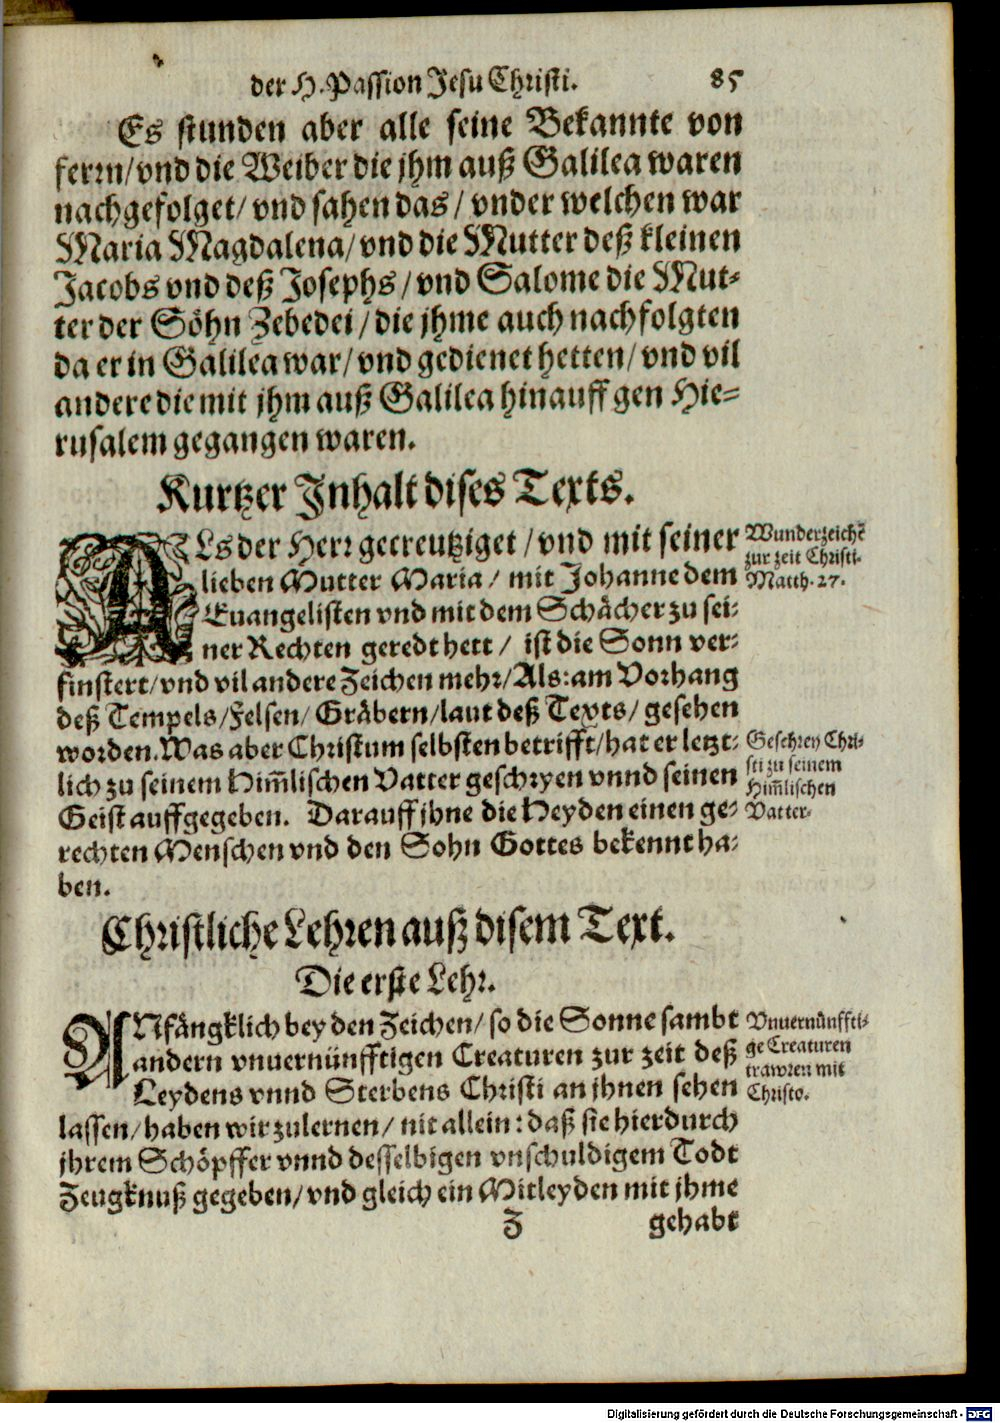 der H. Passion Jesu Christi. 85
Es stunden aber alle seine Bekannte von
ferrn/ vnd die Weiber die jhm auß Galilea waren
nachgefolget/ vnd sahen das/ vnder welchen war
Maria Magdalena/ vnd die Mutter deß kleinen
Jacobs vnd deß Josephs/ vnd Salome die Mut-
ter der Söhn Zebedei/ die jhme auch nachfolgten
da er in Galilea war/ vnd gedienet hetten/ vnd vil
andere die mit jhm auß Galilea hinauff gen Hie-
rusalem gegangen waren.
Kurtzer Inhalt dises Texts.
ALs der Herr gecreutziget/ vnd mit seiner
lieben Mutter Maria/ mit Johanne dem
Euangelisten vnd mit dem Schächer zu sei-
ner Rechten geredt hett/ ist die Sonn ver-
finstert/ vnd vil andere Zeichen mehr/ Als: am Vorhang
deß Tempels/ Felsen/ Gräbern/ laut deß Texts/ gesehen
worden. Was aber Christum selbsten betrifft/ hat er letzt-
lich zu seinem Him̃lischen Vatter geschryen vnnd seinen
Geist auffgegeben. Darauff jhne die Heyden einen ge-
rechten Menschen vnd den Sohn Gottes bekennt ha-
ben.
Wunderzeichẽ
zur zeit Christi.
Matth. 27.
Geschrey Chri-
sti zu seinem
Him̃lischen
Vatter.
Christliche Lehren auß disem Text.
Die erste Lehr.
ANfängklich bey den Zeichen/ so die Sonne sambt
andern vnuernünfftigen Creaturen zur zeit deß
Leydens vnnd Sterbens Christi an jhnen sehen
lassen/ haben wir zulernen/ nit allein: daß sie hierdurch
jhrem Schöpffer vnnd desselbigen vnschuldigem Todt
Zeugknuß gegeben/ vnd gleich ein Mitleyden mit jhme
Vnuernünffti-
ge Creaturen
trawren mit
Christo.
Z gehabt
Digitalisierung gefördert durch die Deutsche Forschungsgemeinschaft - DFG